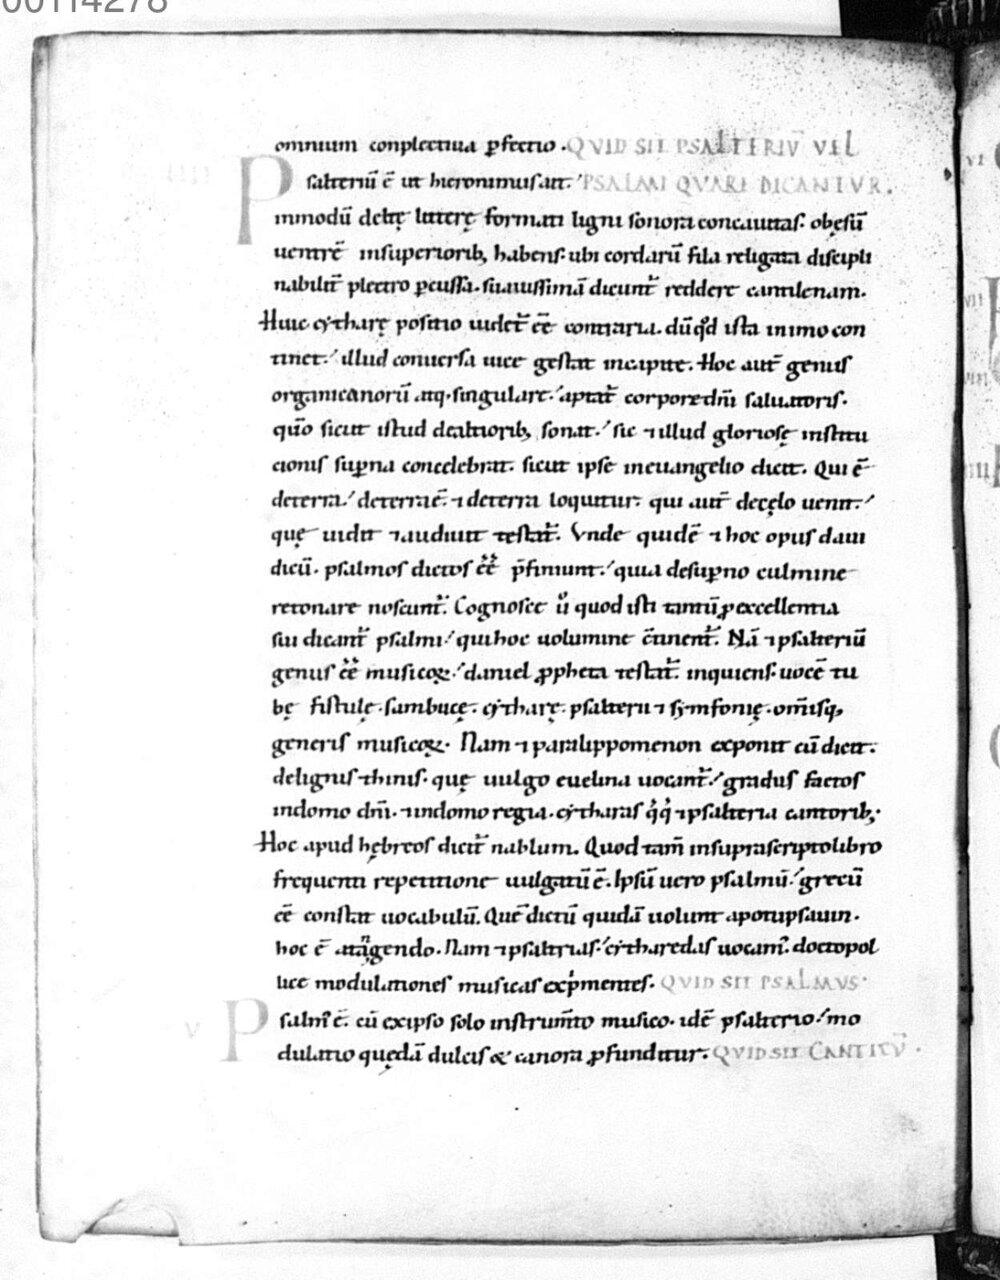 00114278
omnium conplectiua ꝑfectio . QVID SIT PSALTERIV̄ VEL
IIII Psalteriū ē ut hieronimus ait. PSALMI QVARE DICANTVR.
inmodū deltę litterę formati ligni sonora concauitas. obęsū
uentrē insuperiorib; habens. ubi cordarū fila religata discipli
nabilit̄ plectro ꝑcussa. suauissimā dicunt᷑ reddere cantilenam.
Huic cytharę positio uidet᷑ ēē contraria. dū qd̄ ista inimo con
tinet. illud conuersa uice gestat incapite. Hoc aut̄ genus
organicanorū atq; singulare. aptat᷑ corpore dn̄i saluatoris.
quō sicut istud dealtiorib; sonat. sic ⁊ illud gloriosę institu
cionis suꝑna concelebrat. sicut ipse ineuangelio dicit. Qui ē
deterra. deterra ē. ⁊ deterra loquitur. qui aut̄ decęlo uenit.
quę uidit ⁊ audiuit testat᷑. Vnde quidē ⁊ hoc opus daui
dicū. psalmos dictos ēē p̄finiunt. quia desuꝑno culmine
retonare noscunt᷑. Cognosce ū quod isti tantū ꝑ excellentia
sui dicant᷑ psalmi. qui hoc uolumine c̄tinent᷑. Nā ⁊ psalteriū
genus ēē musicoꝝ. daniel ꝓpheta testat᷑. inquiens. uocē tu
bę fistulę. sambucę. cytharę. psalterii ⁊ symfonię. om̄isq;
generis musicoꝝ. Nam ⁊ paralippomenon exponit cū dicit.
delignis thinis. quę uulgo euelina uocant᷑. gradus factos
indomo dn̄i. ⁊ indomo regia. cytharas q̊q̊ ⁊ psalteria cantorib;.
Hoc apud hębreos dicit᷑ nablum. Quod tam̄ insuprascripto libro
frequenti repetitione uulgatū ē. Ipsū uero psalmū. grecū
ēē constat uocabulū. Quē dictū quidā uolunt apotupsauin.
hoc ē atangendo. Nam ⁊ psaltrias. cytharedas uocam᷒. doctopol
lice modulationes musicas exp̍mentes. QVID SIT PSALMVS.
V Psalm᷒ ē. cū exipso solo instrum̄to musico. idē psalterio. mo
dulatio quędā dulcis & canora ꝓfunditur. QVID SIT CANTICV̄ .